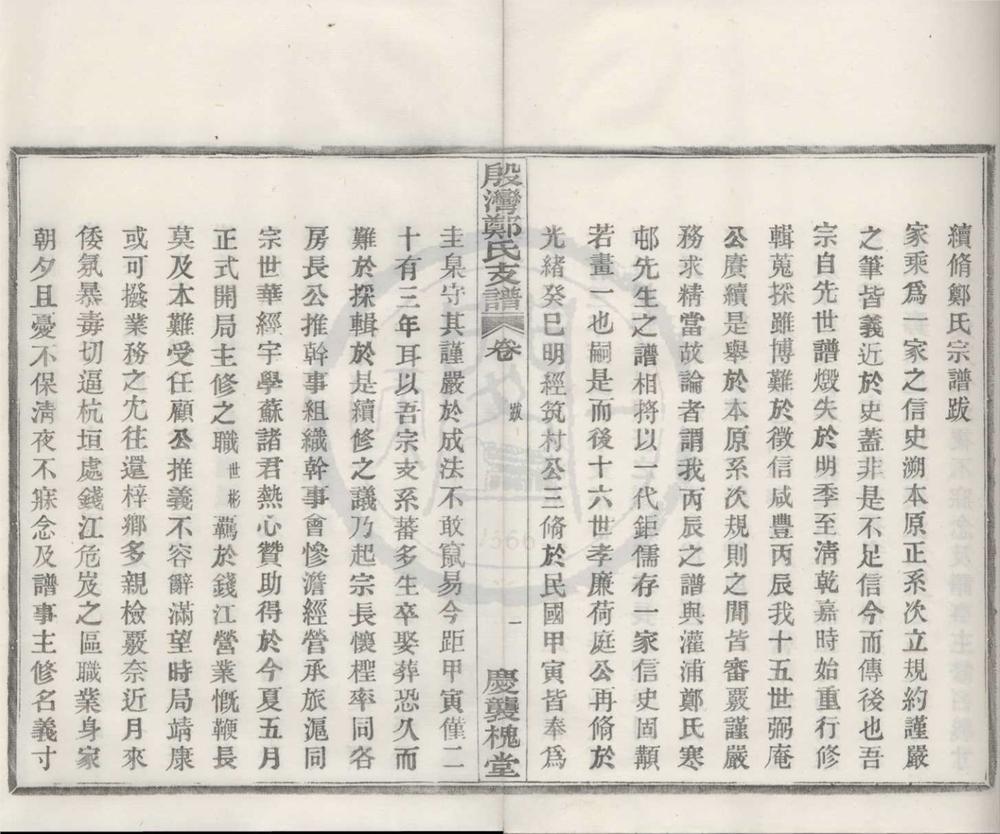 續脩鄭氏宗譜跋
家乘爲一家之信史溯本原正系次立規約謹嚴
之筆皆義近於史蓋非是不足信今而傳後也吾
宗自先世譜燬失於明季至清乾嘉時始重行修
輯蒐採雖博難於徵信咸豐丙辰我十五世弼庵
公賡續是舉於本原系次規則之間皆審覈謹嚴
務求精當故論者謂我丙辰之譜與灌浦鄭氏寒
邨先生之譜相捋以一代鉅儒存一家信史固顜
若畫一也嗣是而後十六世孝廉荷庭公再脩於
光緒癸巳明經筑村公三脩於民國甲寅皆奉爲
殷灣鄭氏支譜
卷
跋
一
慶襲槐堂
圭臬守其謹嚴於成法不敢竄易今距甲寅僅二
十有三年耳以吾宗支系蕃多生卒娶葬恐久而
難於採輯於是續修之議乃起宗長懷橙率同各
房長公推幹事組織幹事會慘澹經營承旅滬同
宗世華經宇學蘇諸君熱心贊助得於今夏五月
正式開局主修之職世彬羈於錢江營業慨鞭長
莫及本難受任顧公推義不容辭滿望時局靖康
或可撥業務之宂往還梓鄉多親檢覈奈近月來
倭氛暴毒切逼杭垣處錢江危岌之區職業身家
朝夕且憂不保清夜不寐念及譜事主修名義寸